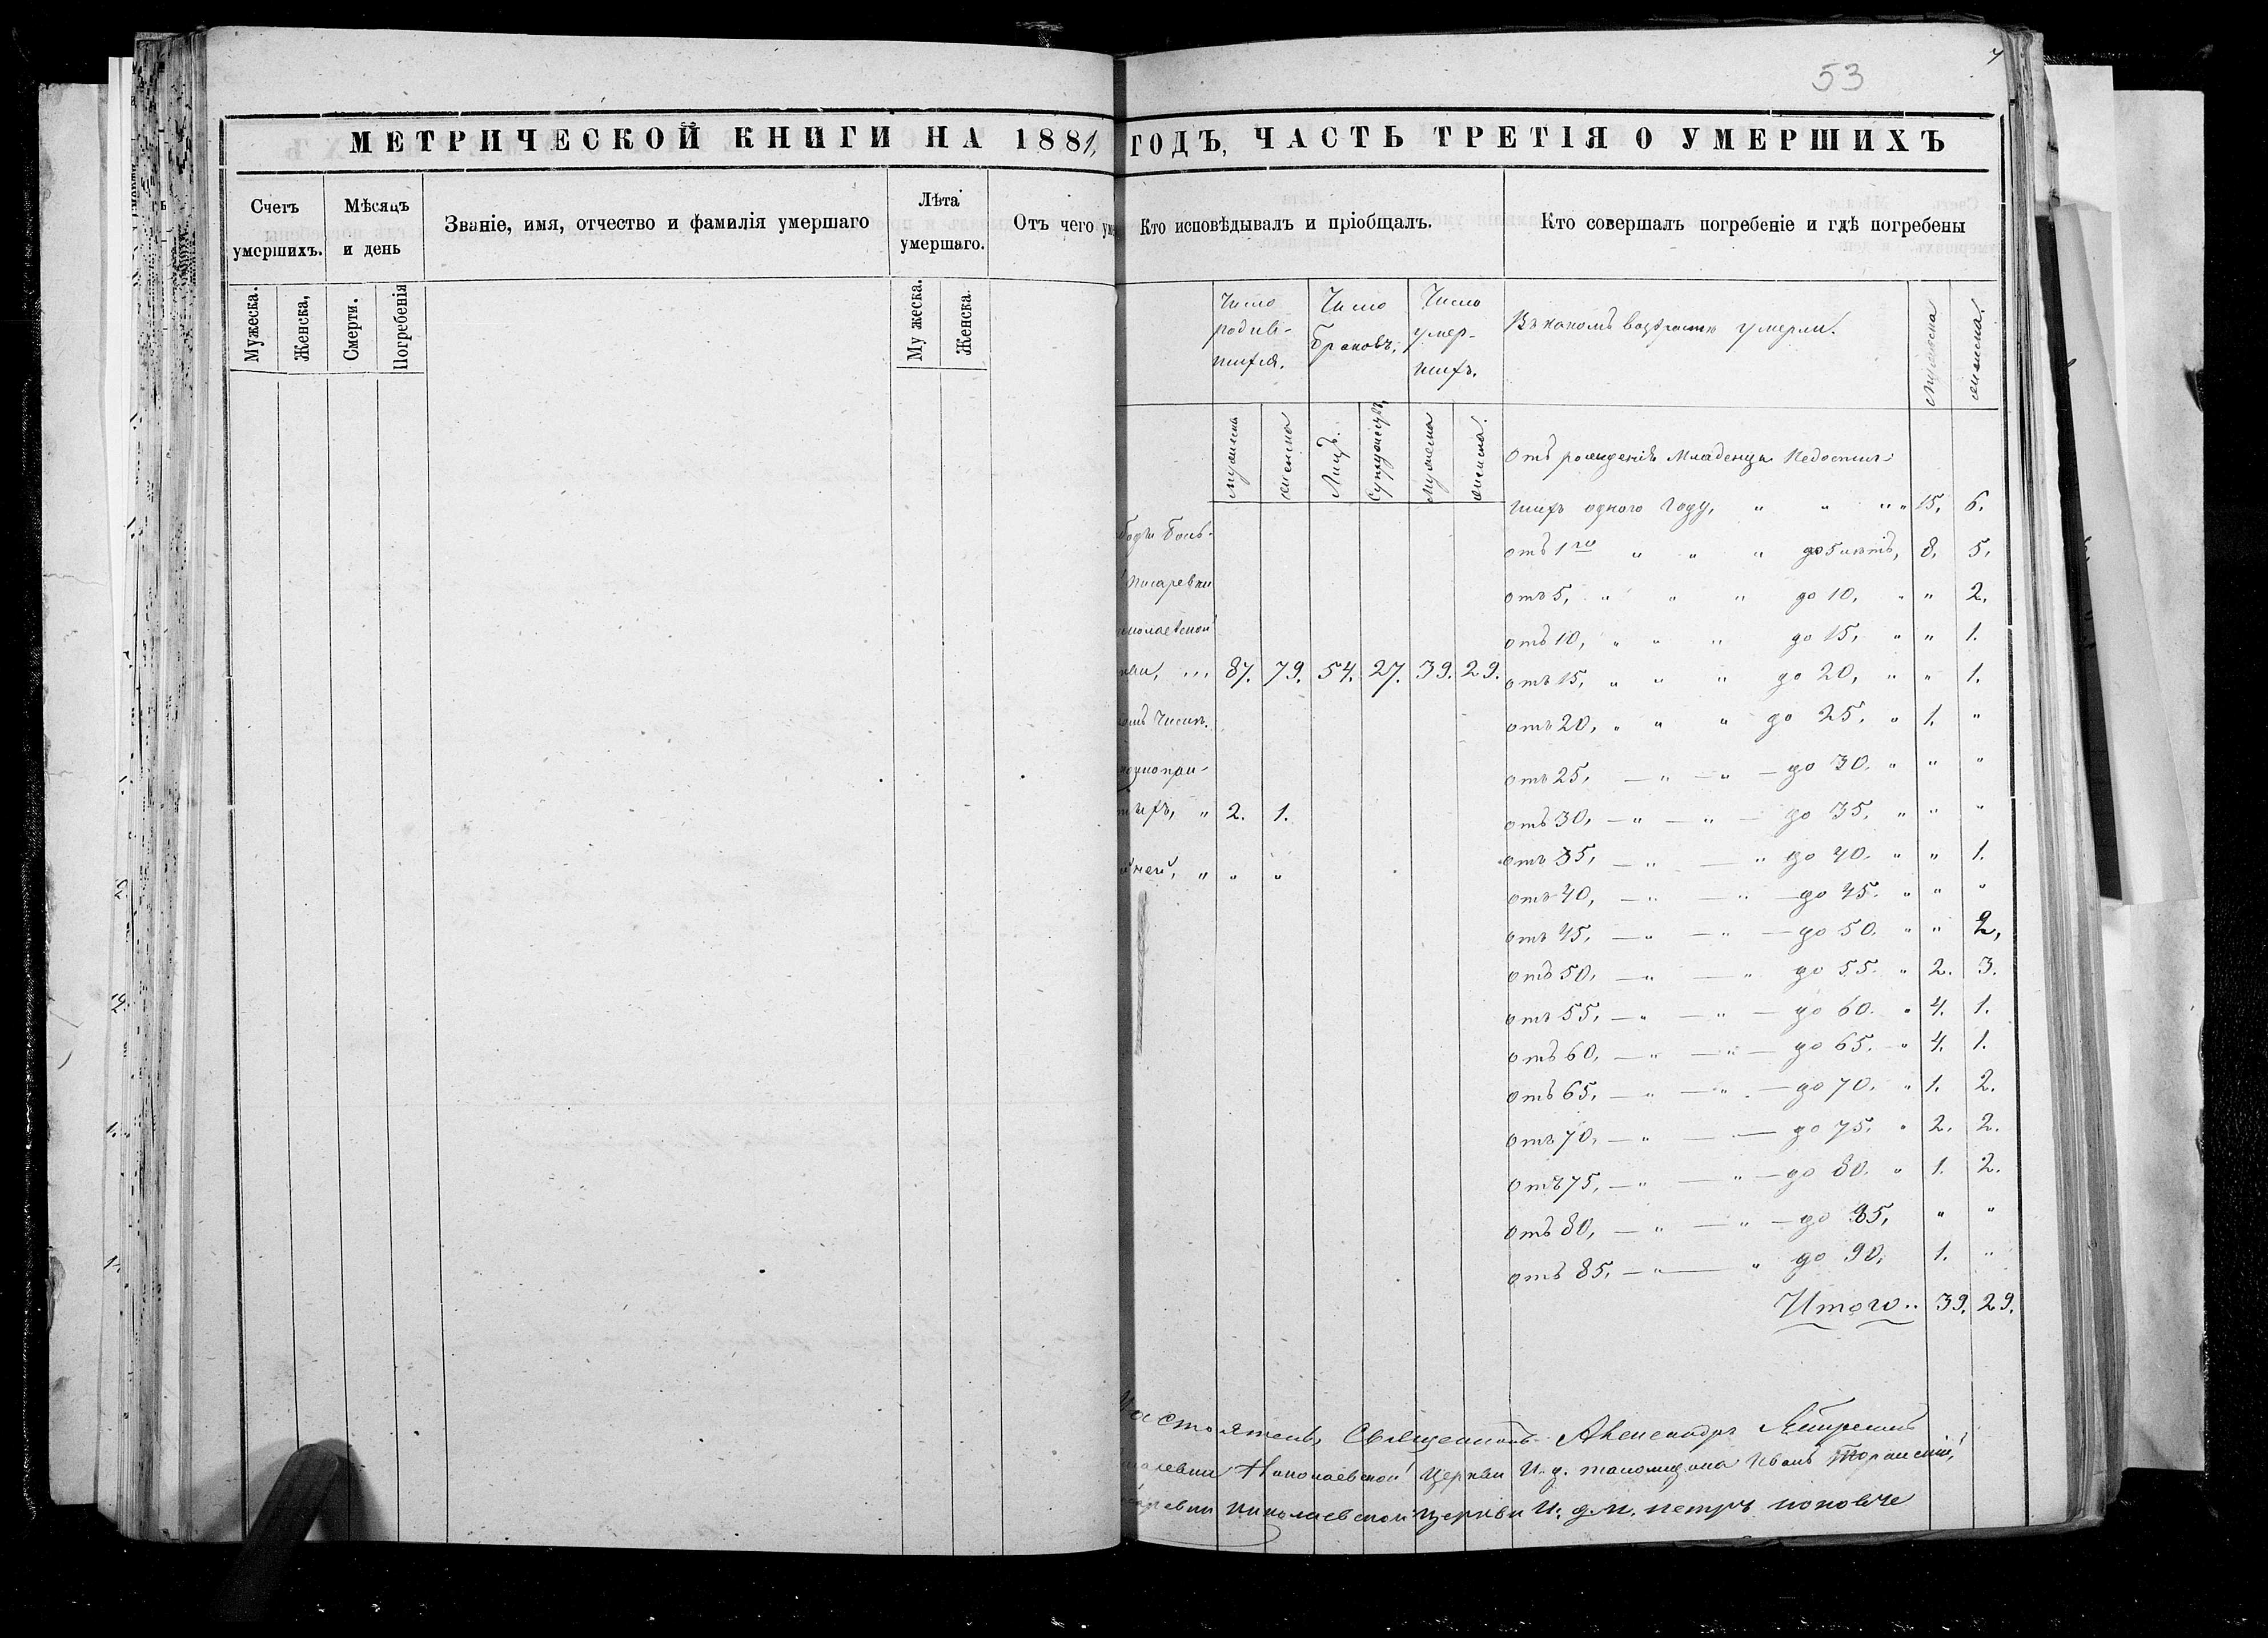 53
МЕТРИЧЕСКОЙ КНИГИ НА 1881, ГОДЪ, ЧАСТЬ ТРЕТІЯ О УМЕРШИХЪ
Счетъ умершихъ.
Мѣсяцъ и день
Званіе, имя, отчество и фамилія умершаго
Лѣта умершаго.
Отъ чего
Кто исповѣдывалъ и пріобщалъ.
Кто совершалъ погребеніе и гдѣ погребены
Мужеска.
Женска,
Смерти.
Погребенія
Му жеска.
Женска.
Число родив-
шихся.
Число
браковъ,
Число
умер-
шихъ.
Въ какомъ возрастѣ умерли.
Мужеска
женска.
мужеска
женска
Лицъ.
Супружествъ,
Мужеска
женска.
Отъ рожденія Младенцы Недостиг-
шихъ одного году, " " " " 15, 6.
отъ 1го " " " до 5 лѣтъ, 8, 5,
отъ 5, " " " до 10, " " 2,
отъ 10, " " " до 15, " " 1.
87. 79. 54. 27. 39. 29.
отъ 15, " " " до 20, " " 1.
отъ 20, " " " до 25, " 1. "
отъ 25, — " — " — до 30. " " "
2. 1.
отъ 30, — " — " — до 35, " " "
отъ 35, — " — " до 40. " " 1.
отъ 40, — " — " — до 45. " " "
отъ 45, — " — " — до 50. " " 2,
отъ 50, — " — " до 55. " 2. 3.
отъ 55, — " — " — до 60. " 4. 1.
отъ 60, — " — " — до 65. " 4. 1.
отъ 65, — " — " — до 70. " 1. 2.
отъ 70, — " — — до 75. " 2. 2.
отъ 75, — " — " — до 80. " 1. 2.
отъ 80, — " — " — до 85, " "
отъ 85, — " — " до 90, 1. "
Итого.. 39. 29.
Священникъ Александръ
Николаевской Церкви И. д. Иванъ
Николаевской Церкви И. д. п. петръ